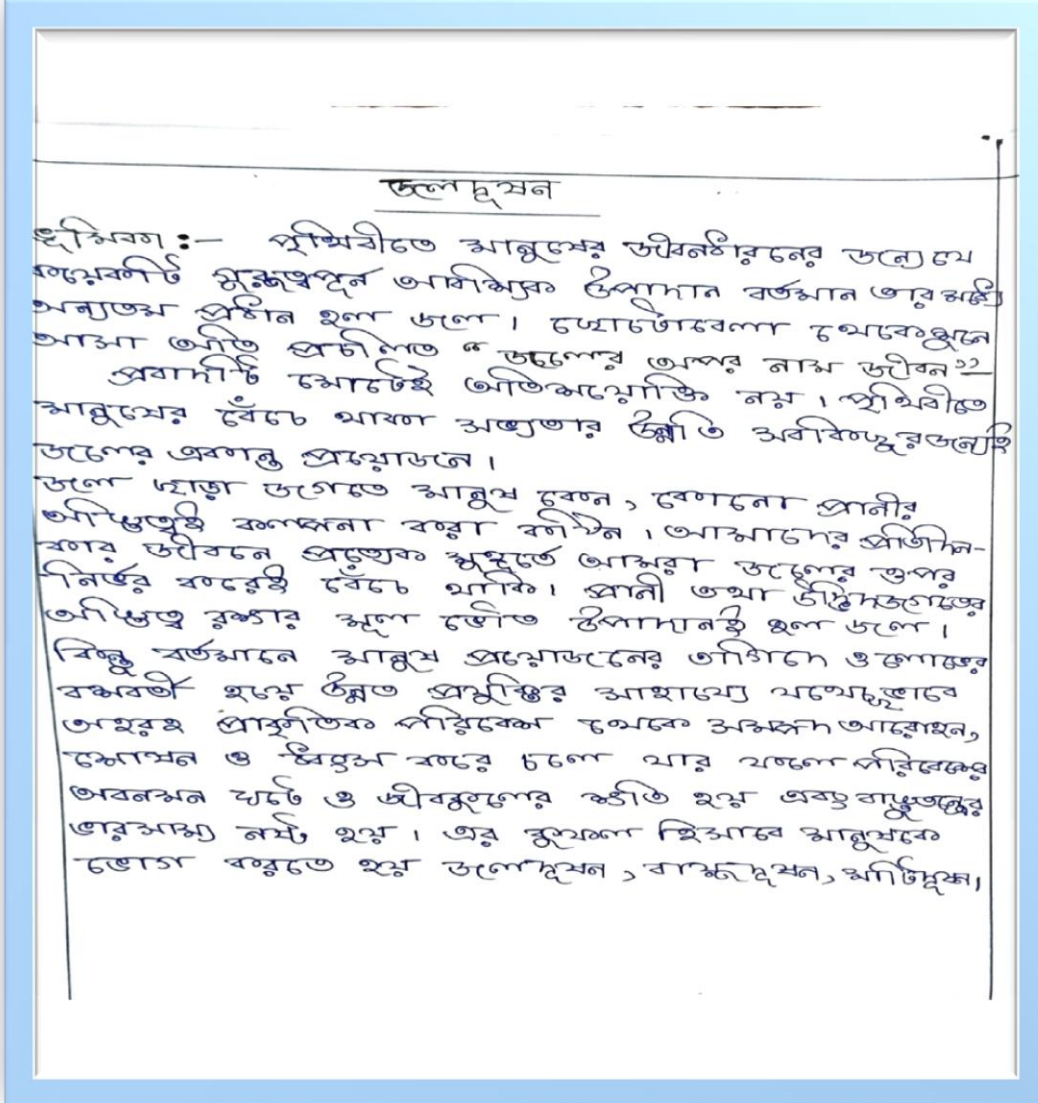 জলদূষন
ভূমিকা :- পৃথিবীতে মানুষের জীবনধারনের জন্যে যে
কয়েকটি গুরুত্বপূর্ন আবশ্যিক উপাদান বর্তমান তার মধ্যে
অন্যতম প্রধান হল জল। ছোটোবেলা থেকে শুনে
আসা অতি প্রচলিত “জলের অপর নাম জীবন”
প্রবাদটি মোটেই অতিশয়োক্তি নয়। পৃথিবীতে
মানুষের বেঁচে থাকা সভ্যতার উন্নতি সবকিছুর জন্যেই
জলের একান্ত প্রয়োজন।
জল ছাড়া জগতে মানুষ কেন, কোনো প্রানীর
অস্তিত্বই কল্পনা করা কঠিন। আমাদের প্রতিদিন-
কার জীবনে প্রত্যেক মুহূর্তে আমরা জলের ওপর
নির্ভর করেই বেঁচে থাকি। প্রানী তথা উদ্ভিদজগতের
অস্তিত্ব রক্ষার মূল ভৌত উপাদানই হল জল।
কিন্তু বর্তমানে মানুষ প্রয়োজনের তাগিদে ও লোভের
বশবর্তী হয়ে উন্নত প্রযুক্তির সাহায্যে যথেচ্ছভাবে
অহরহ প্রাকৃতিক পরিবেশ থেকে সম্পদ আরোহন,
শোষন ও ধ্বংস করে চলে যার ফলে পরিবেশের
অবনমন ঘটে ও জীবকুলের ক্ষতি হয় এবং বাস্তুতন্ত্রের
ভারসাম্য নষ্ট হয়। এর কুফল হিসাবে মানুষকে
ভোগ করতে হয় জলদূষন, বায়ুদূষন, মাটিদূষন।